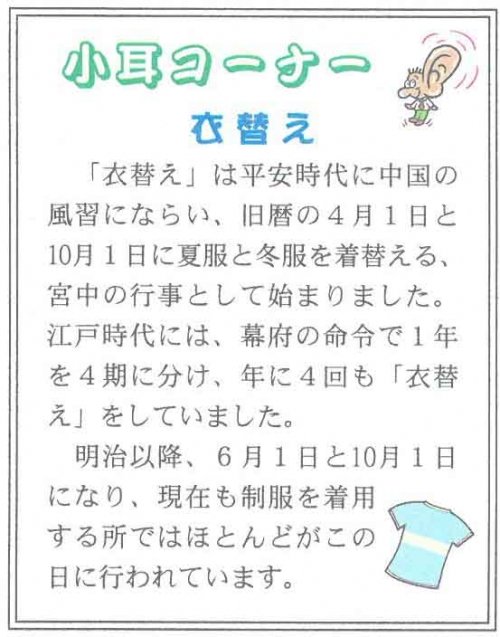 小耳コーナー
衣替え
「衣替え」は平安時代に中国の
風習にならい、旧暦の４月１日と
10月１日に夏服と冬服を着替える、
宮中の行事として始まりました。
江戸時代には、幕府の命令で１年
を４期に分け、年に４回も「衣替
え」をしていました。
明治以降、６月１日と10月１日
になり、現在も制服を着用
する所ではほとんどがこの
日に行われています。